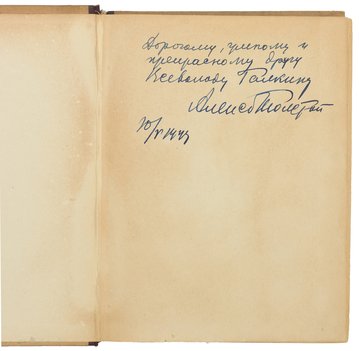 Дорогому, умному и
прекрасному другу
Всеволоду Галкину
Алексей Толстой
10/V 1944